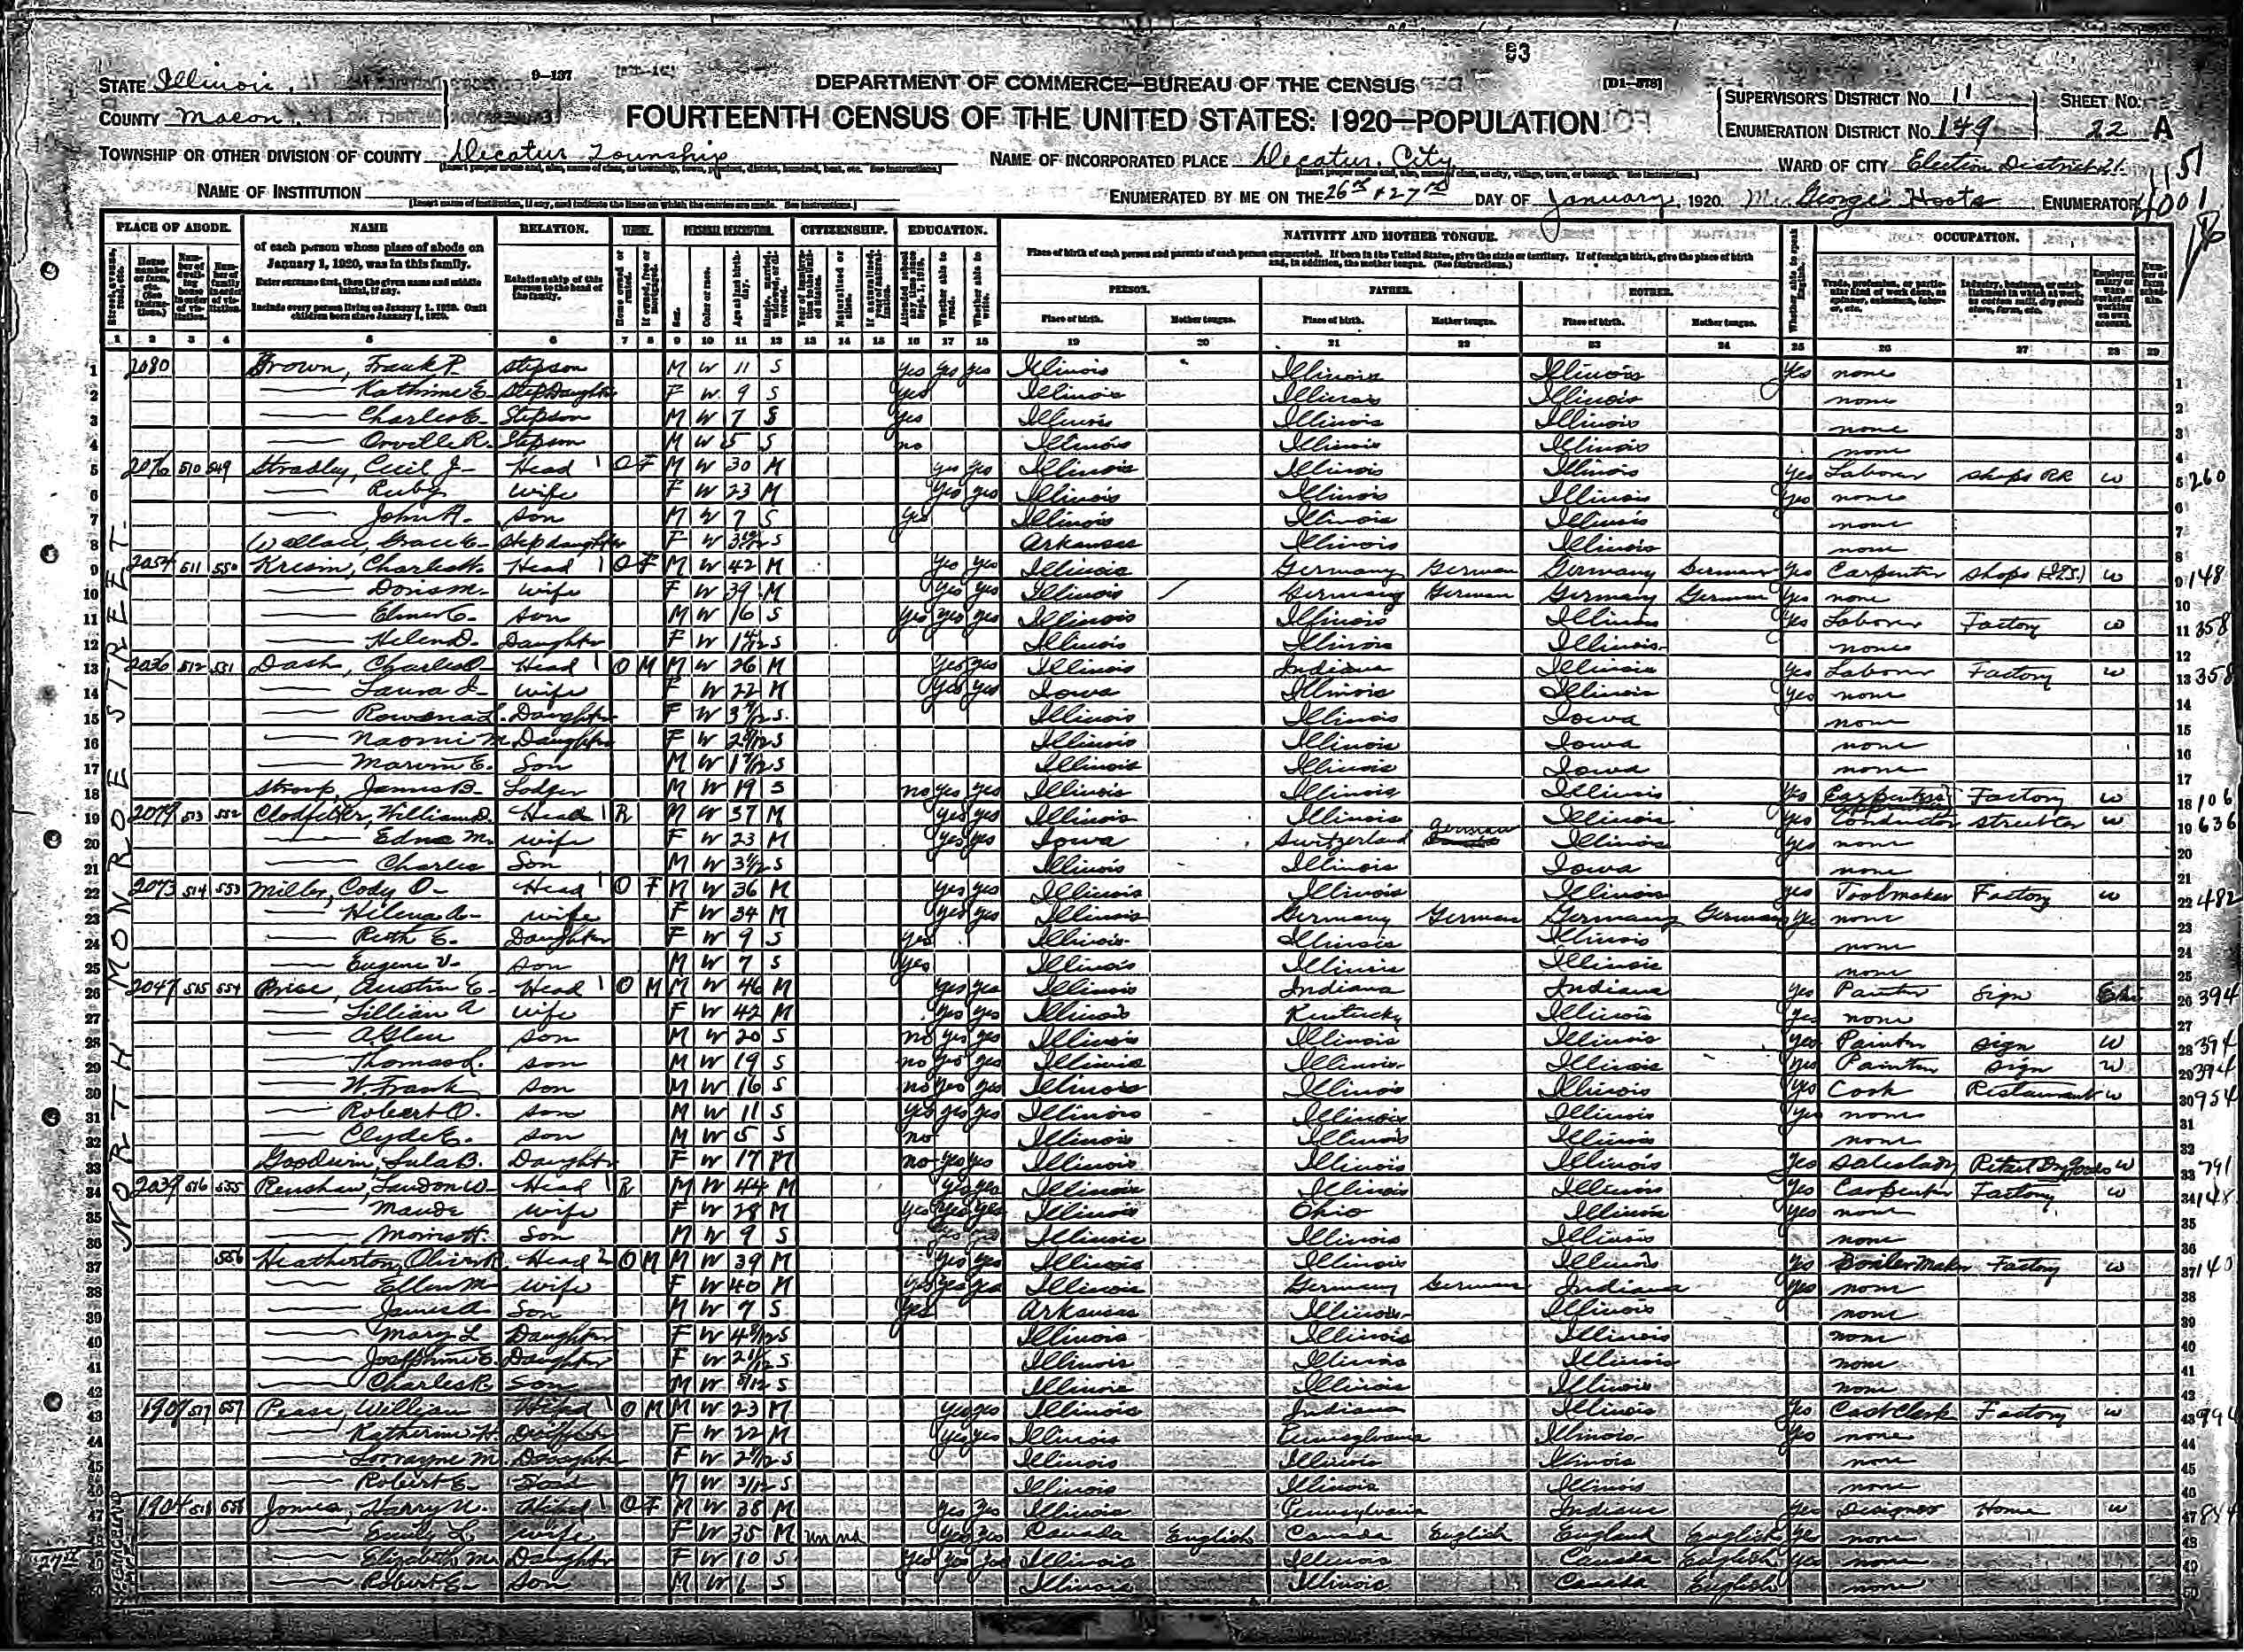 83
STATE Illinois. 9-137 DEPARTMENT OF COMMERCE—BUREAU OF THE CENSUS [D1-578] SUPERVISOR'S DISTRICT No. 11 SHEET No.
COUNTY Macon. FOURTEENTH CENSUS OF THE UNITED STATES: 1920—POPULATION ENUMERATION DISTRICT No. 149 22 A
TOWNSHIP OR OTHER DIVISION OF COUNTY Decatur Township NAME OF INCORPORATED PLACE Decatur City WARD OF CITY Election District 21.
NAME OF INSTITUTION ENUMERATED BY ME ON THE 26th & 27th DAY OF January, 1920. George Hoots ENUMERATOR
PLACE OF ABODE. NAME RELATION. TENURE. PERSONAL DESCRIPTION. CITIZENSHIP. EDUCATION. NATIVITY AND MOTHER TONGUE. OCCUPATION.
of each person whose place of abode on January 1, 1920, was in this family.
Enter surname first, then the given name and middle initial, if any.
Include every person living on January 1, 1920. Omit children born since January 1, 1920.
Relationship of this person to the head of the family.
Place of birth of each person and parents of each person enumerated. If born in the United States, give the state or territory. If of foreign birth, give the place of birth and, in addition, the mother tongue. (See Instructions.)
PERSON. FATHER. MOTHER.
Place of birth. Mother tongue. Place of birth. Mother tongue. Place of birth. Mother tongue.
1 2 3 4 5 6 7 8 9 10 11 12 13 14 15 16 17 18 19 20 21 22 23 24 25 26 27 28 29
NORTH MONROE STREET
1 2080 Brown, Frank P. stepson M W 11 S yes yes yes Illinois Illinois Illinois yes none
2 Kathrine E. StepDaughter F W 9 S yes Illinois Illinois Illinois none
3 Charles E. Stepson M W 7 S yes Illinois Illinois Illinois none
4 Orville R. Stepson M W 5 S no Illinois Illinois Illinois none
5 2076 510 549 Stradley, Cecil J. Head 1 O F M W 30 M yes yes Illinois Illinois Illinois yes Laborer shops RR w 260
6 Ruby wife F W 23 M yes yes Illinois Illinois Illinois yes none
7 John A. son M W 7 S yes Illinois Illinois Illinois none
8 Wallace, Grace E. Step daughter F W S Arkansas Illinois Illinois none
9 2054 511 550 Kresin, Charles H. Head 1 O F M W 42 M yes yes Illinois Germany German Germany German yes Carpenter shops w 148
10 Doris M. wife F W 39 M yes yes Illinois Germany German Germany German yes none
11 Elmer C. son M W 16 S yes yes yes Illinois Illinois Illinois yes Laborer Factory w 358
12 Helen D. Daughter F W S Illinois Illinois Illinois none
13 2036 512 551 Dash, Charles O. Head 1 O M M W 26 M yes yes Illinois Indiana Illinois yes Laborer Factory w 358
14 Laura I. wife F W 22 M yes yes Iowa Illinois Illinois yes none
15 Rowena L. Daughter F W S Illinois Illinois Iowa none
16 Naomi M Daughter F W S Illinois Illinois Iowa none
17 Marvin E. Son M W S Illinois Illinois Iowa none
18 Stroup, James B. Lodger M W 19 S no yes yes Illinois Illinois Illinois yes Carpenters Factory w 106
19 2079 513 552 Clodfelter, William D. Head 1 R M W 37 M yes yes Illinois Illinois Illinois yes Conductor streetcar w 636
20 Edna M. wife F W 23 M yes yes Iowa Switzerland German Illinois yes none
21 Charles Son M W S Illinois Illinois Iowa none
22 2073 514 553 Miller, Cody O. Head 1 O F M W 36 M yes yes Illinois Illinois Illinois yes Toolmaker Factory w 482
23 Helena A. wife F W 34 M yes yes Illinois Germany German Germany German yes none
24 Ruth E. Daughter F W 9 S yes Illinois Illinois Illinois none
25 Eugene V. son M W 7 S yes Illinois Illinois Illinois none
26 2047 515 554 Price, Austin E. Head 1 O M M W 46 M yes yes Illinois Indiana Indiana yes Painter Sign 394
27 Lillian A wife F W 42 M yes yes Illinois Kentucky Illinois yes none
28 A. Glen son M W 20 S no yes yes Illinois Illinois Illinois yes Painter Sign w 394
29 Thomas R. son M W 19 S no yes yes Illinois Illinois Illinois yes Painter Sign w 394
30 W. Frank son M W 16 S no yes yes Illinois Illinois Illinois yes Cook Restaurant w 954
31 Robert O. son M W 11 S yes yes yes Illinois Illinois Illinois yes none
32 Clyde E. son M W 5 S no Illinois Illinois Illinois none
33 Goodwin, Lula B. Daughter F W 17 M no yes yes Illinois Illinois Illinois yes Saleslady Retail Dry Goods w 791
34 2039 516 555 Renshaw, Landon W. Head 1 R M W 44 M yes yes Illinois Illinois Illinois yes Carpenter Factory w 148
35 Maude wife F W 28 M yes yes yes Illinois Ohio Illinois yes none
36 Morris H. Son M W 9 S Illinois Illinois Illinois none
37 556 Heatherton, Oliver R. Head 2 O M M W 39 M yes yes Illinois Illinois Illinois yes Boilermaker Factory w 140
38 Ellen M. wife F W 40 M yes yes yes Illinois Germany German Indiana yes none
39 James A. Son M W 7 S yes Arkansas Illinois Illinois none
40 Mary L Daughter F W S Illinois Illinois Illinois none
41 Josephine E. Daughter F W S Illinois Illinois Illinois none
42 Charles R. Son M W S Illinois Illinois Illinois none
43 1907 517 557 Pease, William Head 1 O M M W 23 M yes yes Illinois Indiana Illinois yes Cost Clerk Factory w 994
44 Katherine H. F W 22 M yes yes Illinois Pennsylvania Illinois yes none
45 Lorrayne M. Daughter F W S Illinois Illinois Illinois none
46 Robert E. M W 3/12 S Illinois Illinois Illinois none
47 1904 518 558 Jomes, Harry N. Head 1 O F M W 38 M yes yes Illinois Pennsylvania Indiana yes Designer Home w
48 Emily L. wife F W 35 M un na yes yes Canada English Canada English England English yes none
49 Elizabeth M. Daughter F W 10 S yes yes yes Illinois Illinois Canada English yes none
50 Robert E. Son M W S Illinois Illinois Canada English none